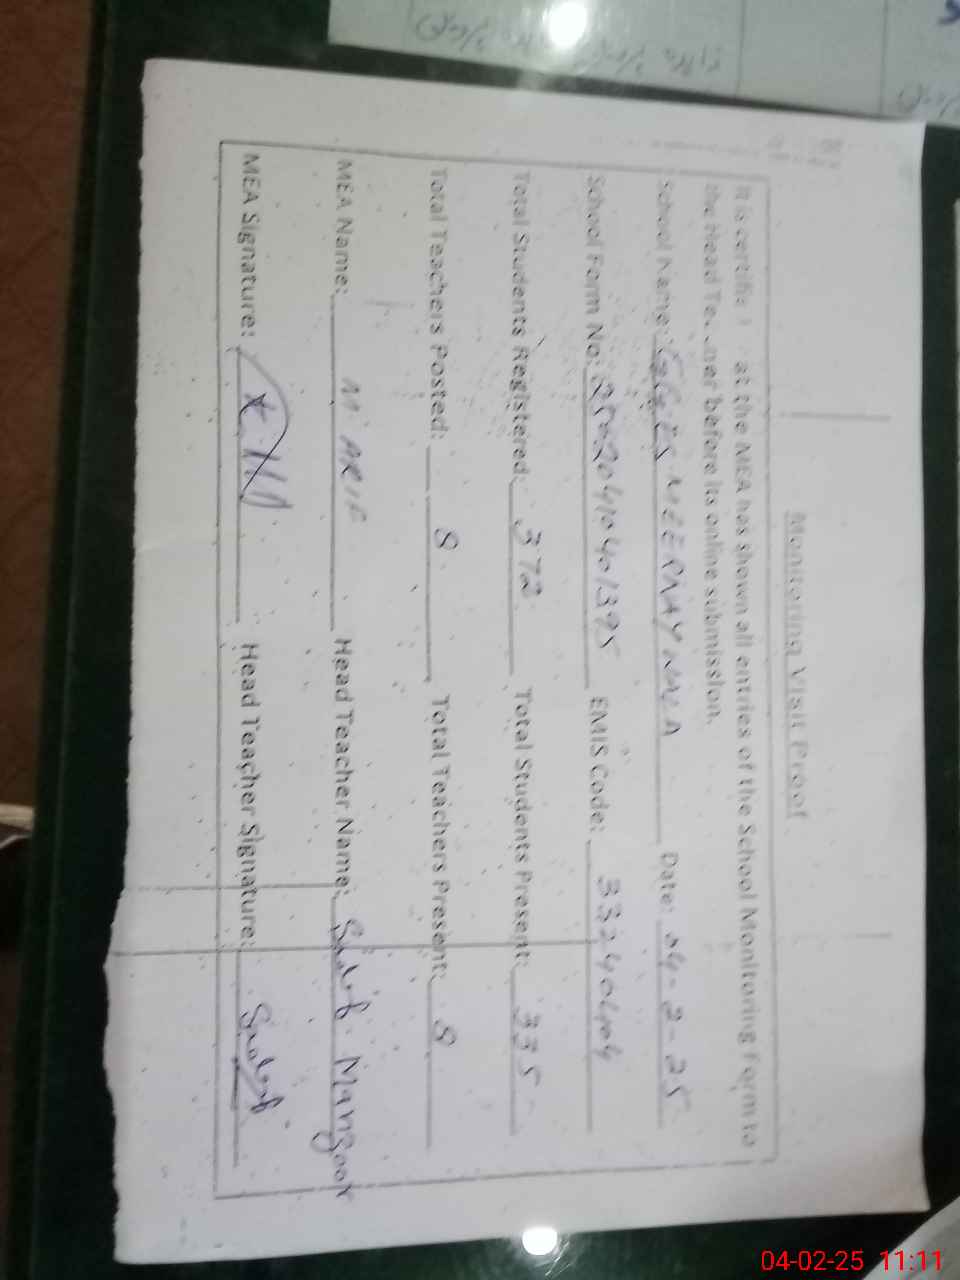 Monitoring Visit Proof
It is certifi at the MEA has shown all entries of the School Monitoring Form to
the Head Te..her before its online submission.
School Name: GGES MEERNAY WALA Date: 04-2-25
School Form No: EMIS Code: 33240404
Total Students Registered: 372 Total Students Present: 335
Total Teachers Posted: 8 Total Teachers Present: 8
MEA Name: M ARIF Head Teacher Name: Manzoor
MEA Signature: Head Teacher Signature:
04-02-25 11:11